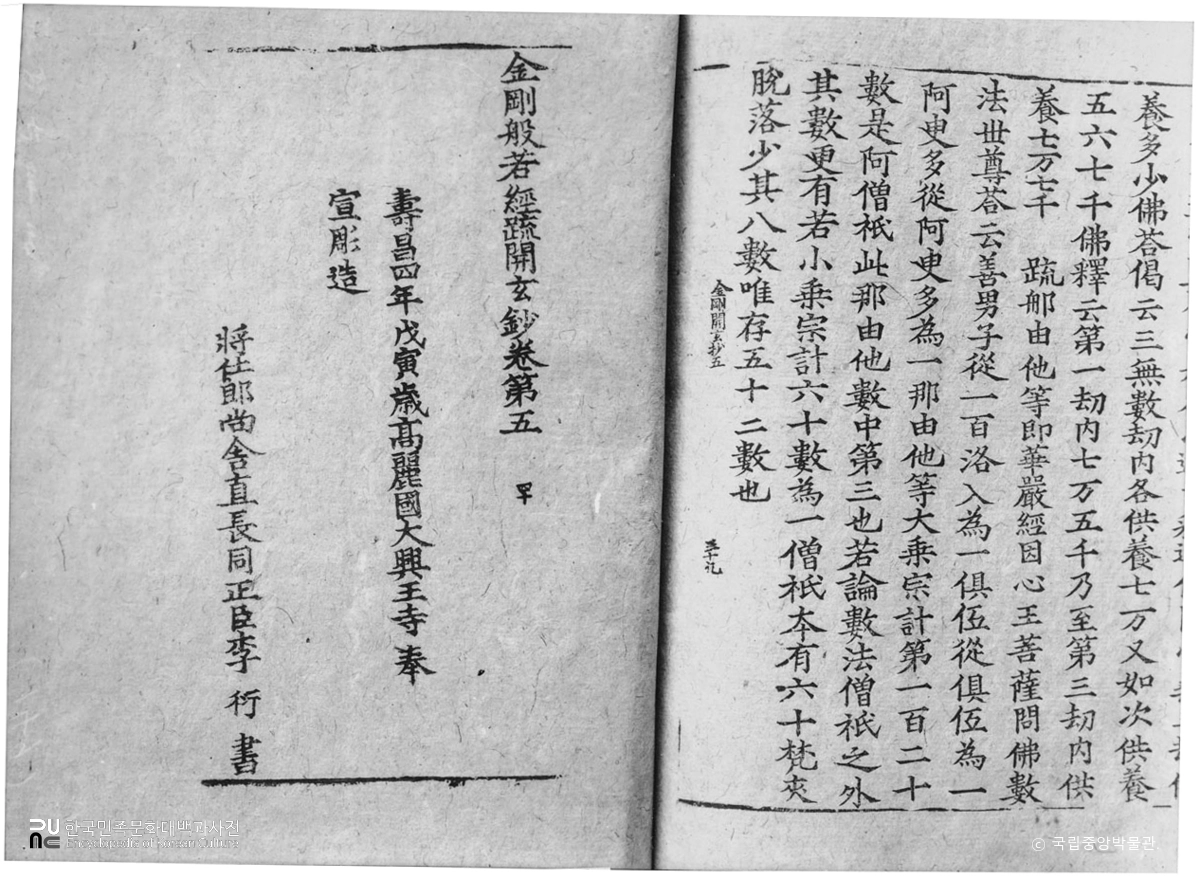 養多少佛荅偈云三無數刧内各供養七万又如次供養
五六七千佛釋云第一刧内七万五千乃至第三刧内供
養七万七千 䟽那由他等即華嚴經因心王菩薩問佛數
法世尊荅云善男子從一百洛入為一俱伍從俱伍為一
阿㬰多從阿㬰多為一那由他等大乗宗計第一百二十
數是阿僧祇此那由他數中第三也若論數法僧祇之外
其數更有若小乗宗計六十數為一僧祇夲有六十梵夾
脫落少其八數唯存五十二數也
金剛開玄抄五
金剛般若經䟽開玄鈔卷第五
壽昌四年戊寅歲高麗國大興王寺奉
宣彫造
將仕郎尚舍直長同正臣李 衍 書
한국민족문화대백과사전
Encyclopedia of Korean Culture
© 국립중앙박물관